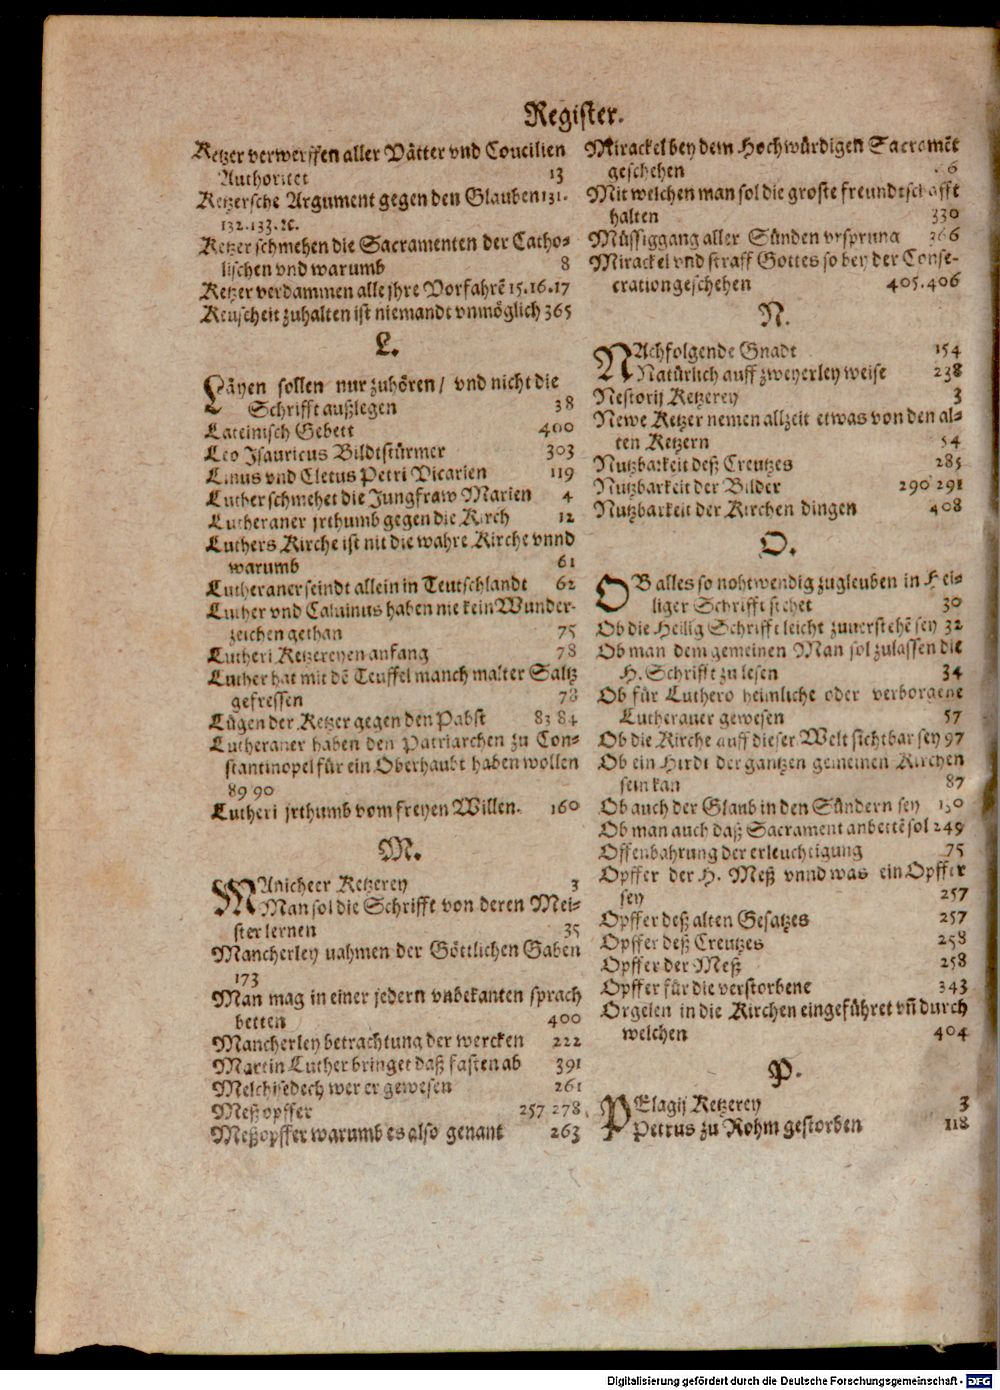 Register.
Ketzer verwerffen aller Vätter vnd Concilien
Authoritet 13
Ketzersche Argument gegen den Glauben 131.
132.133.ꝛc.
Ketzer schmehen die Sacramenten der Catho-
lischen vnd warumb 8
Ketzer verdammen alle jhre Vorfahrē 15.16.17
Keuscheit zuhalten ist niemandt vnmöglich 365
L.
Läyen sollen nur zuhören / vnd nicht die
Schrifft außlegen 38
Lateinisch Gebett 400
Leo Isauricus Bildtstürmer 303
Linus vnd Cletus Petri Vicarien 119
Luther schmehet die Jungfraw Marien 4
Lutheraner jrthumb gegen die Kirch 12
Luthers Kirche ist nit die wahre Kirche vnnd
warumb 61
Lutheraner seindt allein in Teutschlandt 62
Luther vnd Caluinus haben nie kein Wunder-
zeichen gethan 75
Lutheri Ketzereyen anfang 78
Luther hat mit dē Teuffel manch malter Saltz
gefressen 78
Lügen der Ketzer gegen den Pabst 83 84
Lutheraner haben den Patriarchen zu Con-
stantinopel für ein Oberhaubt haben wollen
89 90
Lutheri jrthumb vom freyen Willen. 160
M.
MAnicheer Ketzerey 3
Man sol die Schrifft von deren Mei-
ster lernen 35
Mancherley nahmen der Göttlichen Gaben
173
Man mag in einer jedern vnbekanten sprach
betten 400
Mancherley betrachtung der wercken 222
Martin Luther bringet daß fasten ab 391
Melchisedech wer er gewesen 261
Meßopffer 257 278.
Meßopffer warumb es also genant 263
Mirackel bey dem Hochwürdigen Sacramēt
geschehen
Mit welchen man sol die groste freundtschafft
halten 330
Müssiggang aller Sünden vrsprung 366
Mirackel vnd straff Gottes so bey der Conse-
cration geschehen 405.406
N.
NAchfolgende Gnadt 154
Natürlich auff zweyerley weise 238
Nestorij Ketzerey 3
Newe Ketzer nemen allzeit etwas von den al-
ten Ketzern 54
Nutzbarkeit deß Creutzes 285
Nutzbarkeit der Bilder 290 291
Nutzbarkeit der Kirchen dingen 408
O.
OB alles so nohtwendig zugleuben in Hei-
liger Schrifft stehet 30
Ob die Heilig Schrifft leicht zuuerstehē sey 32
Ob man dem gemeinen Man sol zulassen die
H. Schrifft zu lesen 34
Ob für Luthero heimliche oder verborgene
Lutheraner gewesen 57
Ob die Kirche auff dieser Welt sichtbar sey 97
Ob ein Hirdt der gantzen gemeinen Kirchen
sein kan 87
Ob auch der Glaub in den Sündern sey 150
Ob man auch daß Sacrament anbettē sol 249
Offenbahrung der erleuchtigung 75
Opffer der H. Meß vnnd was ein Opffer
sey 257
Opffer deß alten Gesatzes 257
Opffer deß Creutzes 258
Opffer der Meß 258
Opffer für die verstorbene 343
Orgelen in die Kirchen eingeführet vn̄ durch
welchen 404
P.
PElagij Ketzerey 3
Petrus zu Rohm gestorben 118
Digitalisierung gefördert durch die Deutsche Forschungsgemeinschaft - DFG